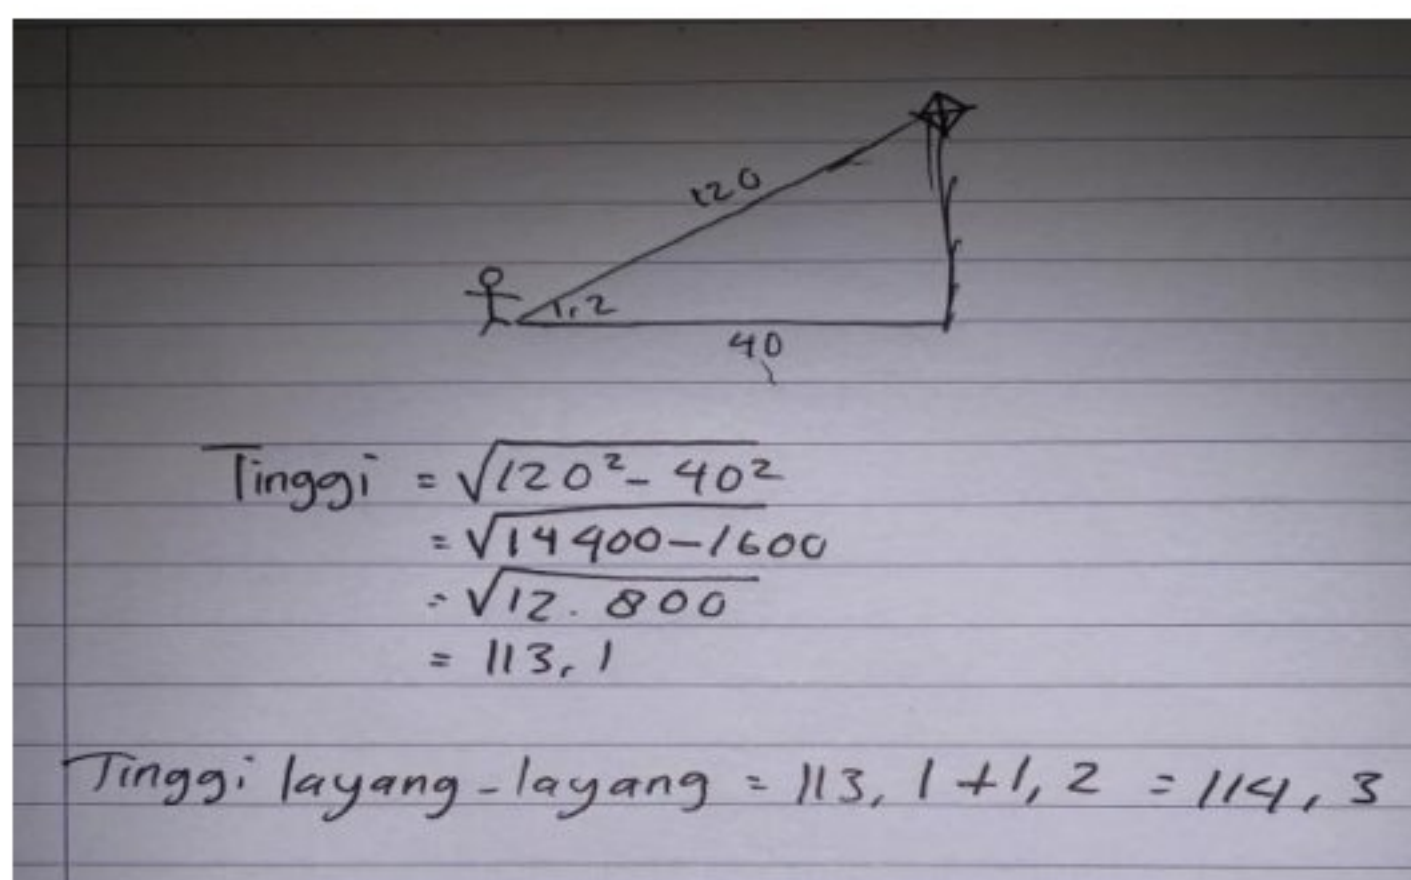 120
1,2
40
Tinggi = √120² - 40²
= √14400 - 1600
= √12.800
= 113,1
Tinggi layang-layang = 113,1 + 1,2 = 114,3